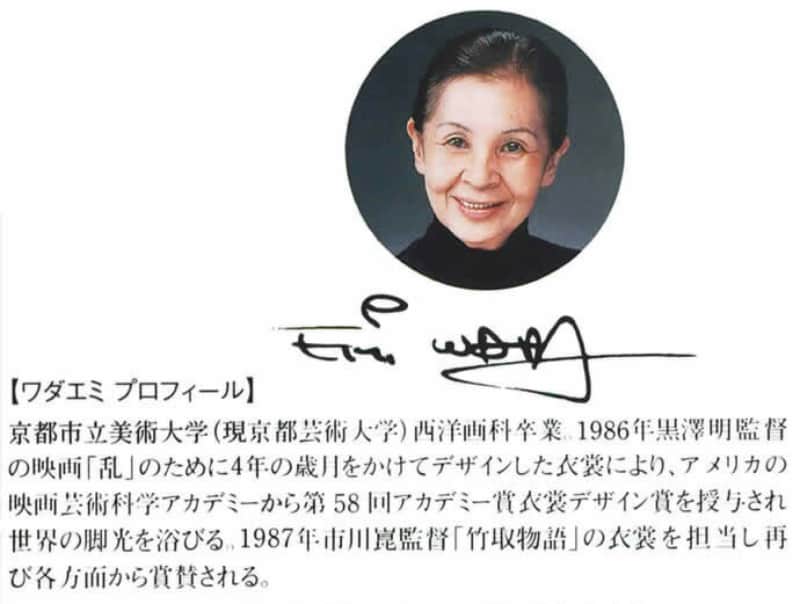 Emi WADA
【ワダエミ プロフィール】
京都市立美術大学(現京都芸術大学)西洋画科卒業。1986年黒澤明監督
の映画「乱」のために4年の歳月をかけてデザインした衣裳により、アメリカの
映画芸術科学アカデミーから第58回アカデミー賞衣裳デザイン賞を授与され
世界の脚光を浴びる。1987年市川崑監督「竹取物語」の衣裳を担当し再
び各方面から賞賛される。